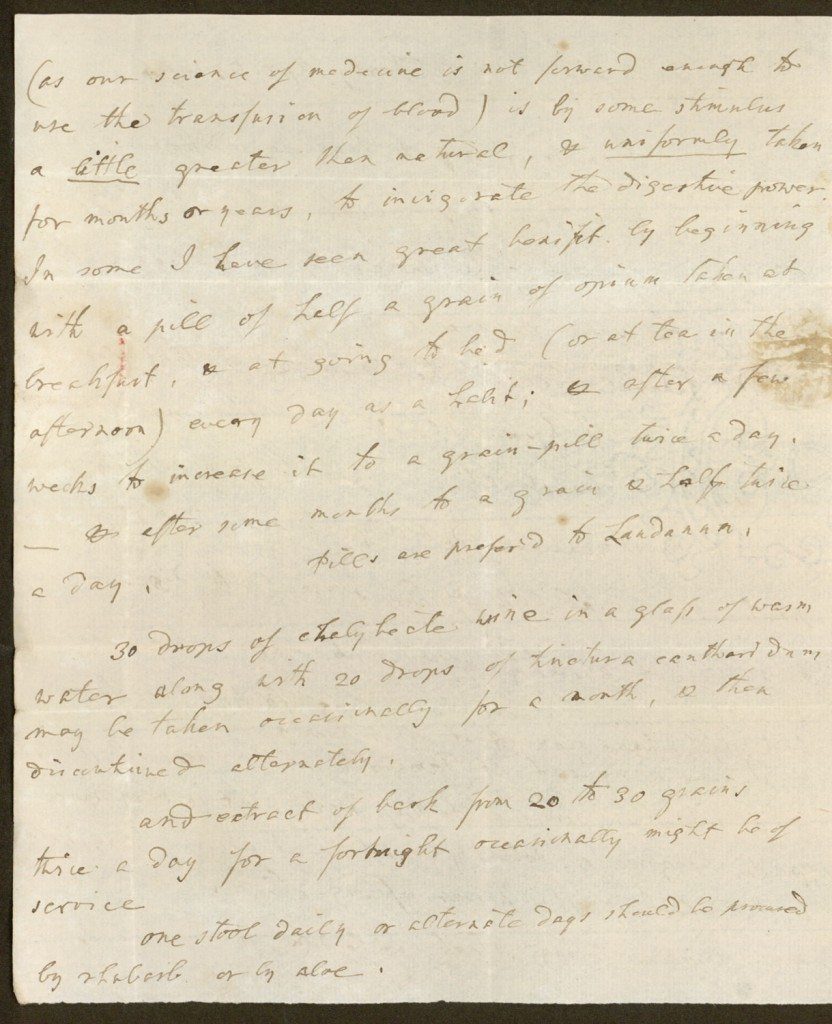 (as our science of medecine is not forward enough to
use the transfusion of blood) is by some stimulus
a little greater than natural, & uniformly taken
for months or years, to invigorate the digestive power.
In some I have seen great benifit by beginning
with a pill of half a grain of opium taken at
breakfast, & at going to bed (or at tea in the
afternoon) every day as a habit; & after a few
weeks to increase it to a grain-pill twice a day.
— & after some months to a grain & half twice
a day. Pills are prefer'd to Laudanum.
30 drops of chalybeate wine in a glass of warm
water along with 20 drops of tinctura cantharidum
may be taken occasionally for a month, & then
discontinued alternately.
and extract of bark from 20 to 30 grains
twice a day for a fortnight occasionally might be of
service
one stool daily or alternate days should be procured
by rhubarb or by aloe.